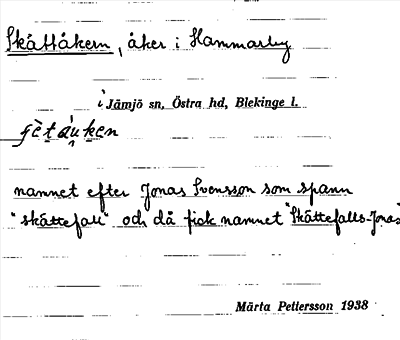 Skåttåkern, åker i Hammarby
i Jämjö sn, Östra hd, Blekinge l.
namnet efter Jonas Svensson som spann
"skåttefall" och då fick namnet "Skåttefalls-Jonas"
Märta Pettersson 1938